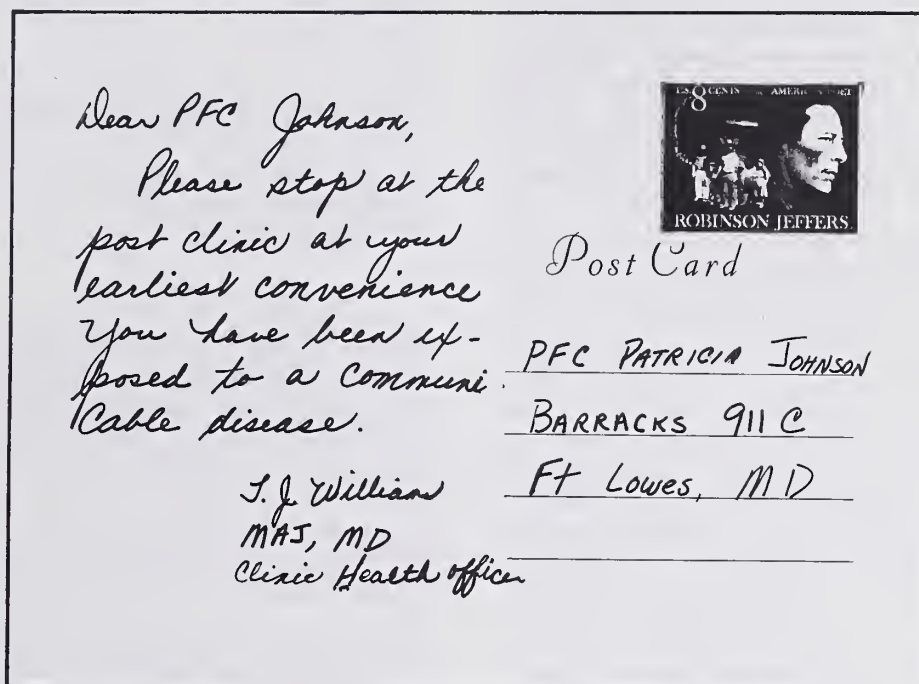 Dear PFC Johnson,
Please stop at the
post clinic at your
earliest convenience
You have been ex-
posed to a communi
cable disease.
T. J. Williams
MAJ, MD
Clinic Health officer
U.S. 8 CENTS AMERICAN POET
ROBINSON JEFFERS
Post Card
PFC PATRICIA JOHNSON
BARRACKS 911 C
Ft Lowes, MD